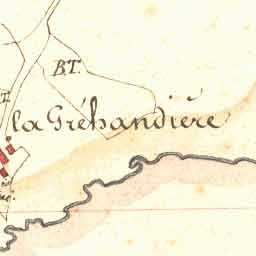 B.T.
la Gréhandière